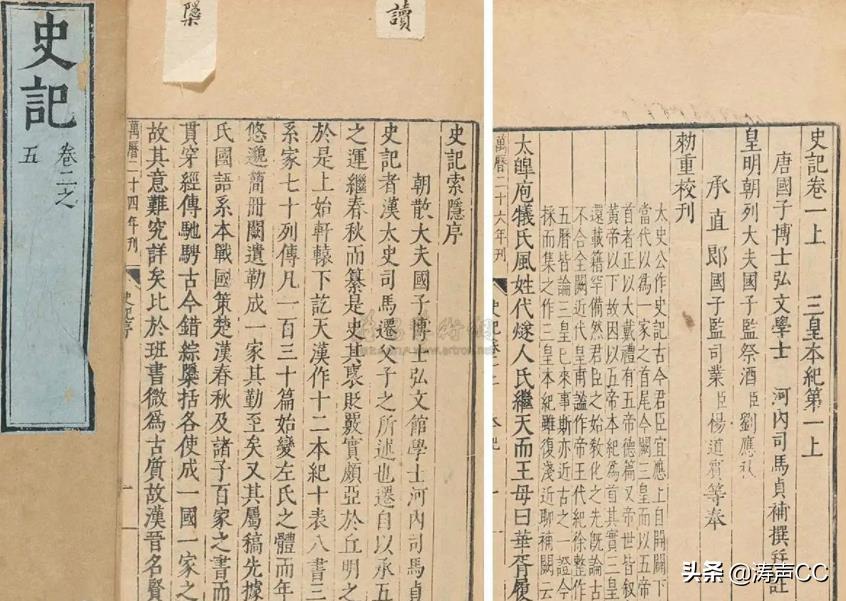 史記
卷二之
五
隱
讀
史記索隱序
朝散大夫國子博士弘文館學士河內司馬貞
史記者漢太史司馬遷父子之所述也遷自以承五
之運繼春秋而纂是史其裦貶覈實頗亞於丘明之
於是上始軒轅下訖天漢作十二本紀十表八書三
系家七十列傳凡一百三十篇始變左氏之體而年
悠邈簡冊闕遺勒成一家其勤至矣又其屬稿先據
氏國語系本戰國策楚漢春秋及諸子百家之書而
貫穿經傳馳騁古今錯綜櫽括各使成一國一家之
故其意難究詳矣比於班書微為古質故漢晉名賢
萬曆二十四年刊
史記序
史記卷一上 三皇本紀第一上
唐國子博士弘文學士 河內司馬貞補撰并註
皇明朝列大夫國子監祭酒臣劉應
承直郎國子監司業臣楊道賓等奉
勑重校刊
太史公作史記古今君臣宜應上自開闢下
當代以為一家之首尾今闕三皇而以五帝
首者正以大戴禮有五帝德篇又帝世皆叙
黃帝以下故因以五帝本紀為首其實三皇
還載籍罕備然君臣之始教化之先旣論古
不合全闕近代皇甫謐作帝王代紀徐整作
五曆皆論三皇已來事斯亦近古之一證今
採而集之作三皇本紀雖復淺近聊補闕云
太皥庖犧氏風姓代燧人氏繼天而王母曰華胥履
萬曆二十六年刊
史記卷一上 本紀
一
头条 @涛声CC